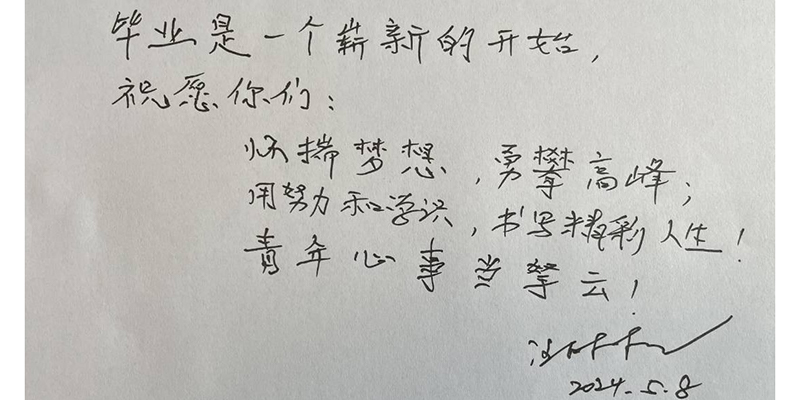 毕业是一个崭新的开始，
祝愿你们：
怀揣梦想，勇攀高峰；
用努力和学识，书写精彩人生！
青年心事当拏云！
2024.5.8